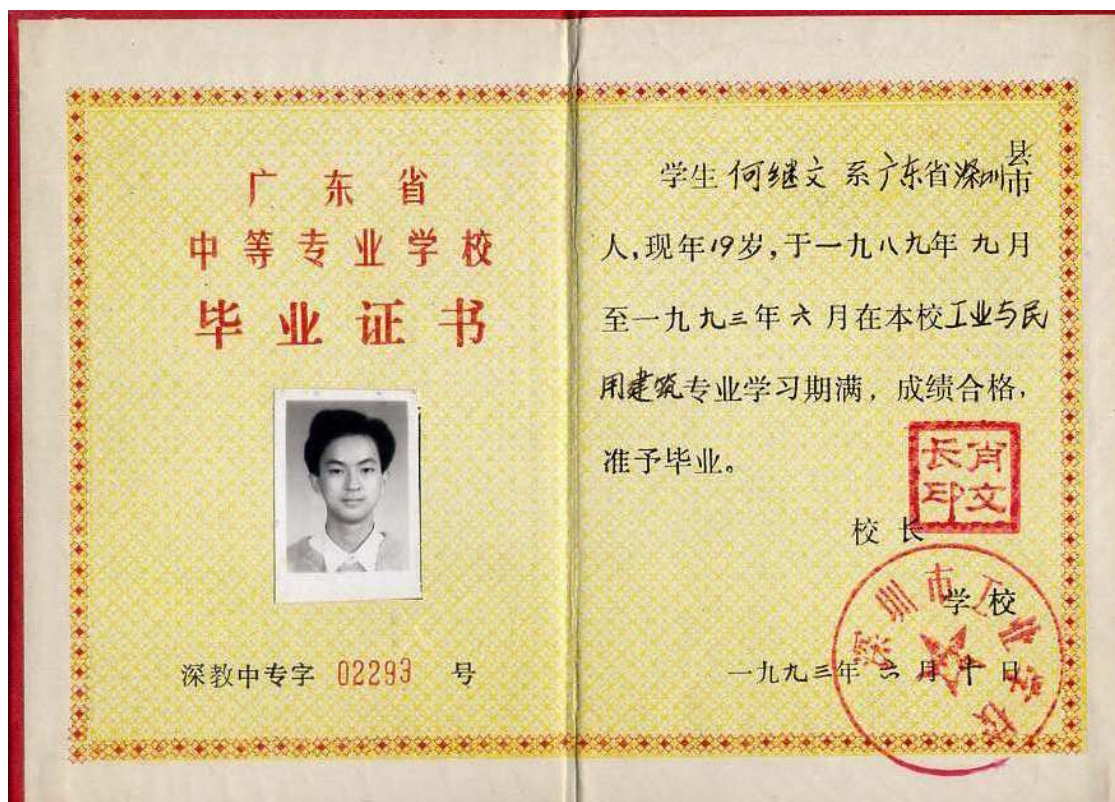 广东省
中等专业学校
毕业证书
深教中专字 02293 号
学生 何继文 系广东省深圳县市
人,现年19岁,于一九八九年九月
至一九九三年六月在本校工业与民
用建筑专业学习期满,成绩合格,
准予毕业。
肖文长印
校长
深圳市工业学校
学校
一九九三年六月十日